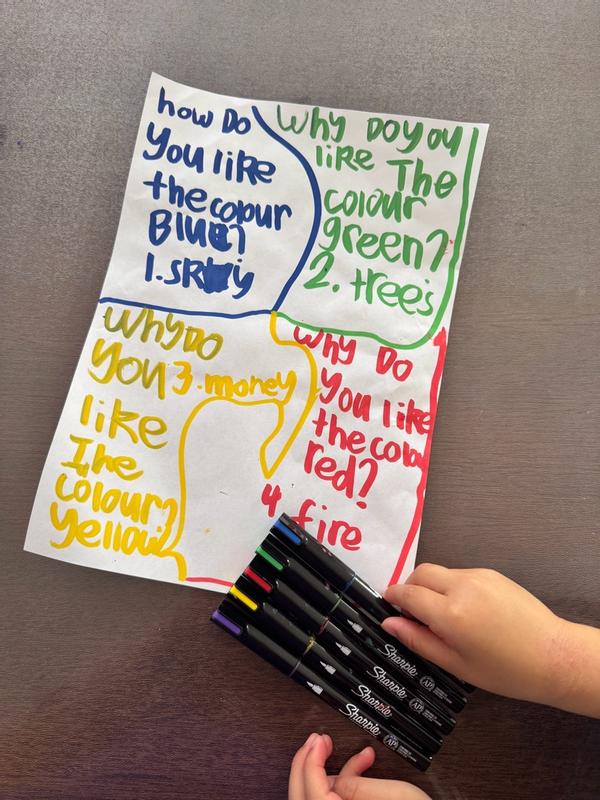 how Do
you like
the copur
Blue?
1. sky
Why Do you
like The
colour
green?
2. trees
Why Do
you
like
The
colour?
yellow
3. money
Why Do
you like
the colou
red?
4 fire
Sharpie
AP
Sharpie
AP
Sharpie
AP
Sharpie
AP